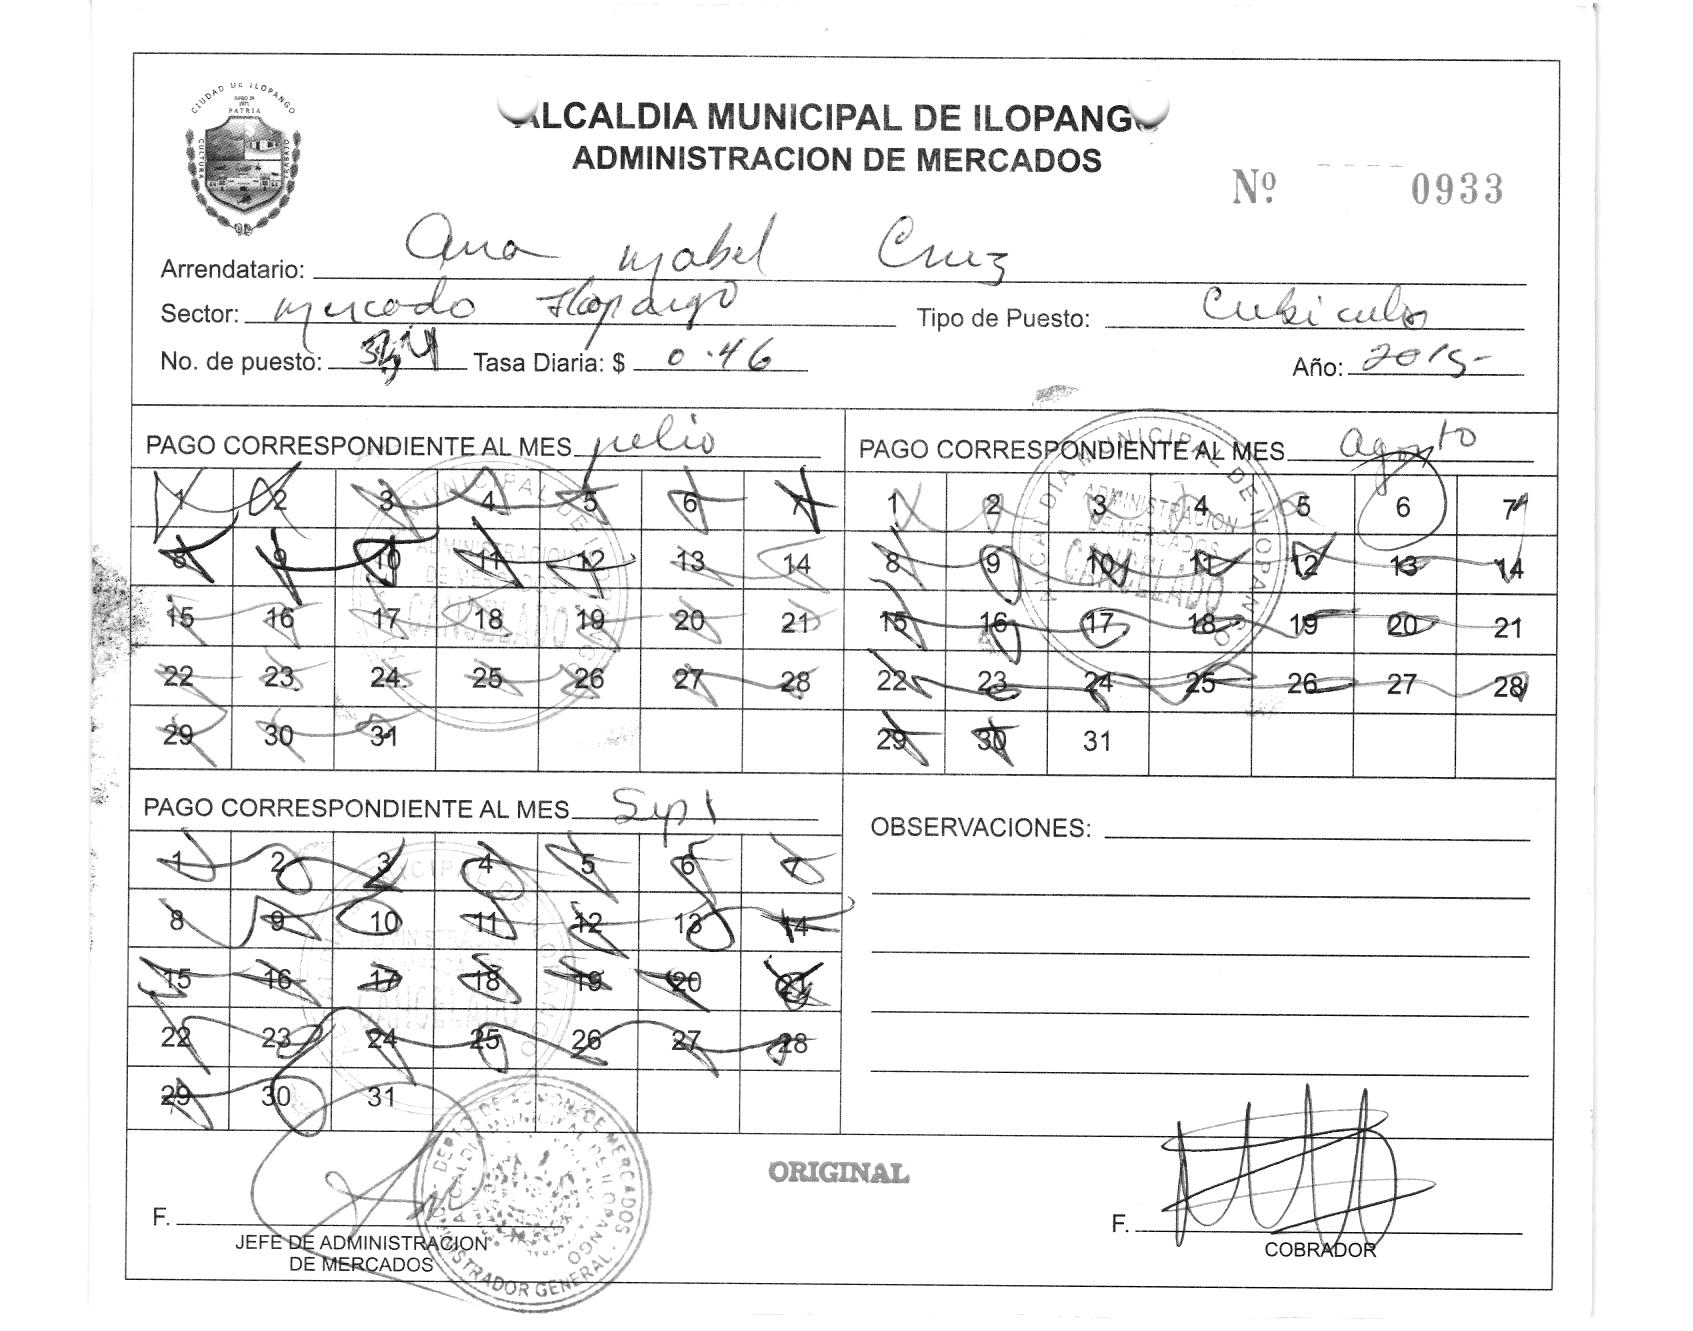 CIUDAD DE ILOPANGO
PATRIA
CULTURA
TRABAJO
ALCALDIA MUNICIPAL DE ILOPANGO
ADMINISTRACION DE MERCADOS
Nº 0933
Arrendatario: Ana Isabel Cruz
Sector: Mercado Ilopango Tipo de Puesto: Cubiculo
No. de puesto: Tasa Diaria: $ 0.46 Año: 2015-
PAGO CORRESPONDIENTE AL MES julio
1 2 3 4 5 6 7
8 9 10 11 12 13 14
15 16 17 18 19 20 21
22 23 24 25 26 27 28
29 30 31
PAGO CORRESPONDIENTE AL MES agosto
1 2 3 4 5 6 7
8 9 10 11 12 13 14
15 16 17 18 19 20 21
22 23 24 25 26 27 28
29 30 31
ALCALDIA MUNICIPAL DE ILOPANGO
ADMINISTRACION
DE MERCADOS
CANCELADO
PAGO CORRESPONDIENTE AL MES Sept
1 2 3 4 5 6 7
8 9 10 11 12 13 14
15 16 17 18 19 20 21
22 23 24 25 26 27 28
29 30 31
OBSERVACIONES:
ORIGINAL
F.
JEFE DE ADMINISTRACION
DE MERCADOS
F.
COBRADOR